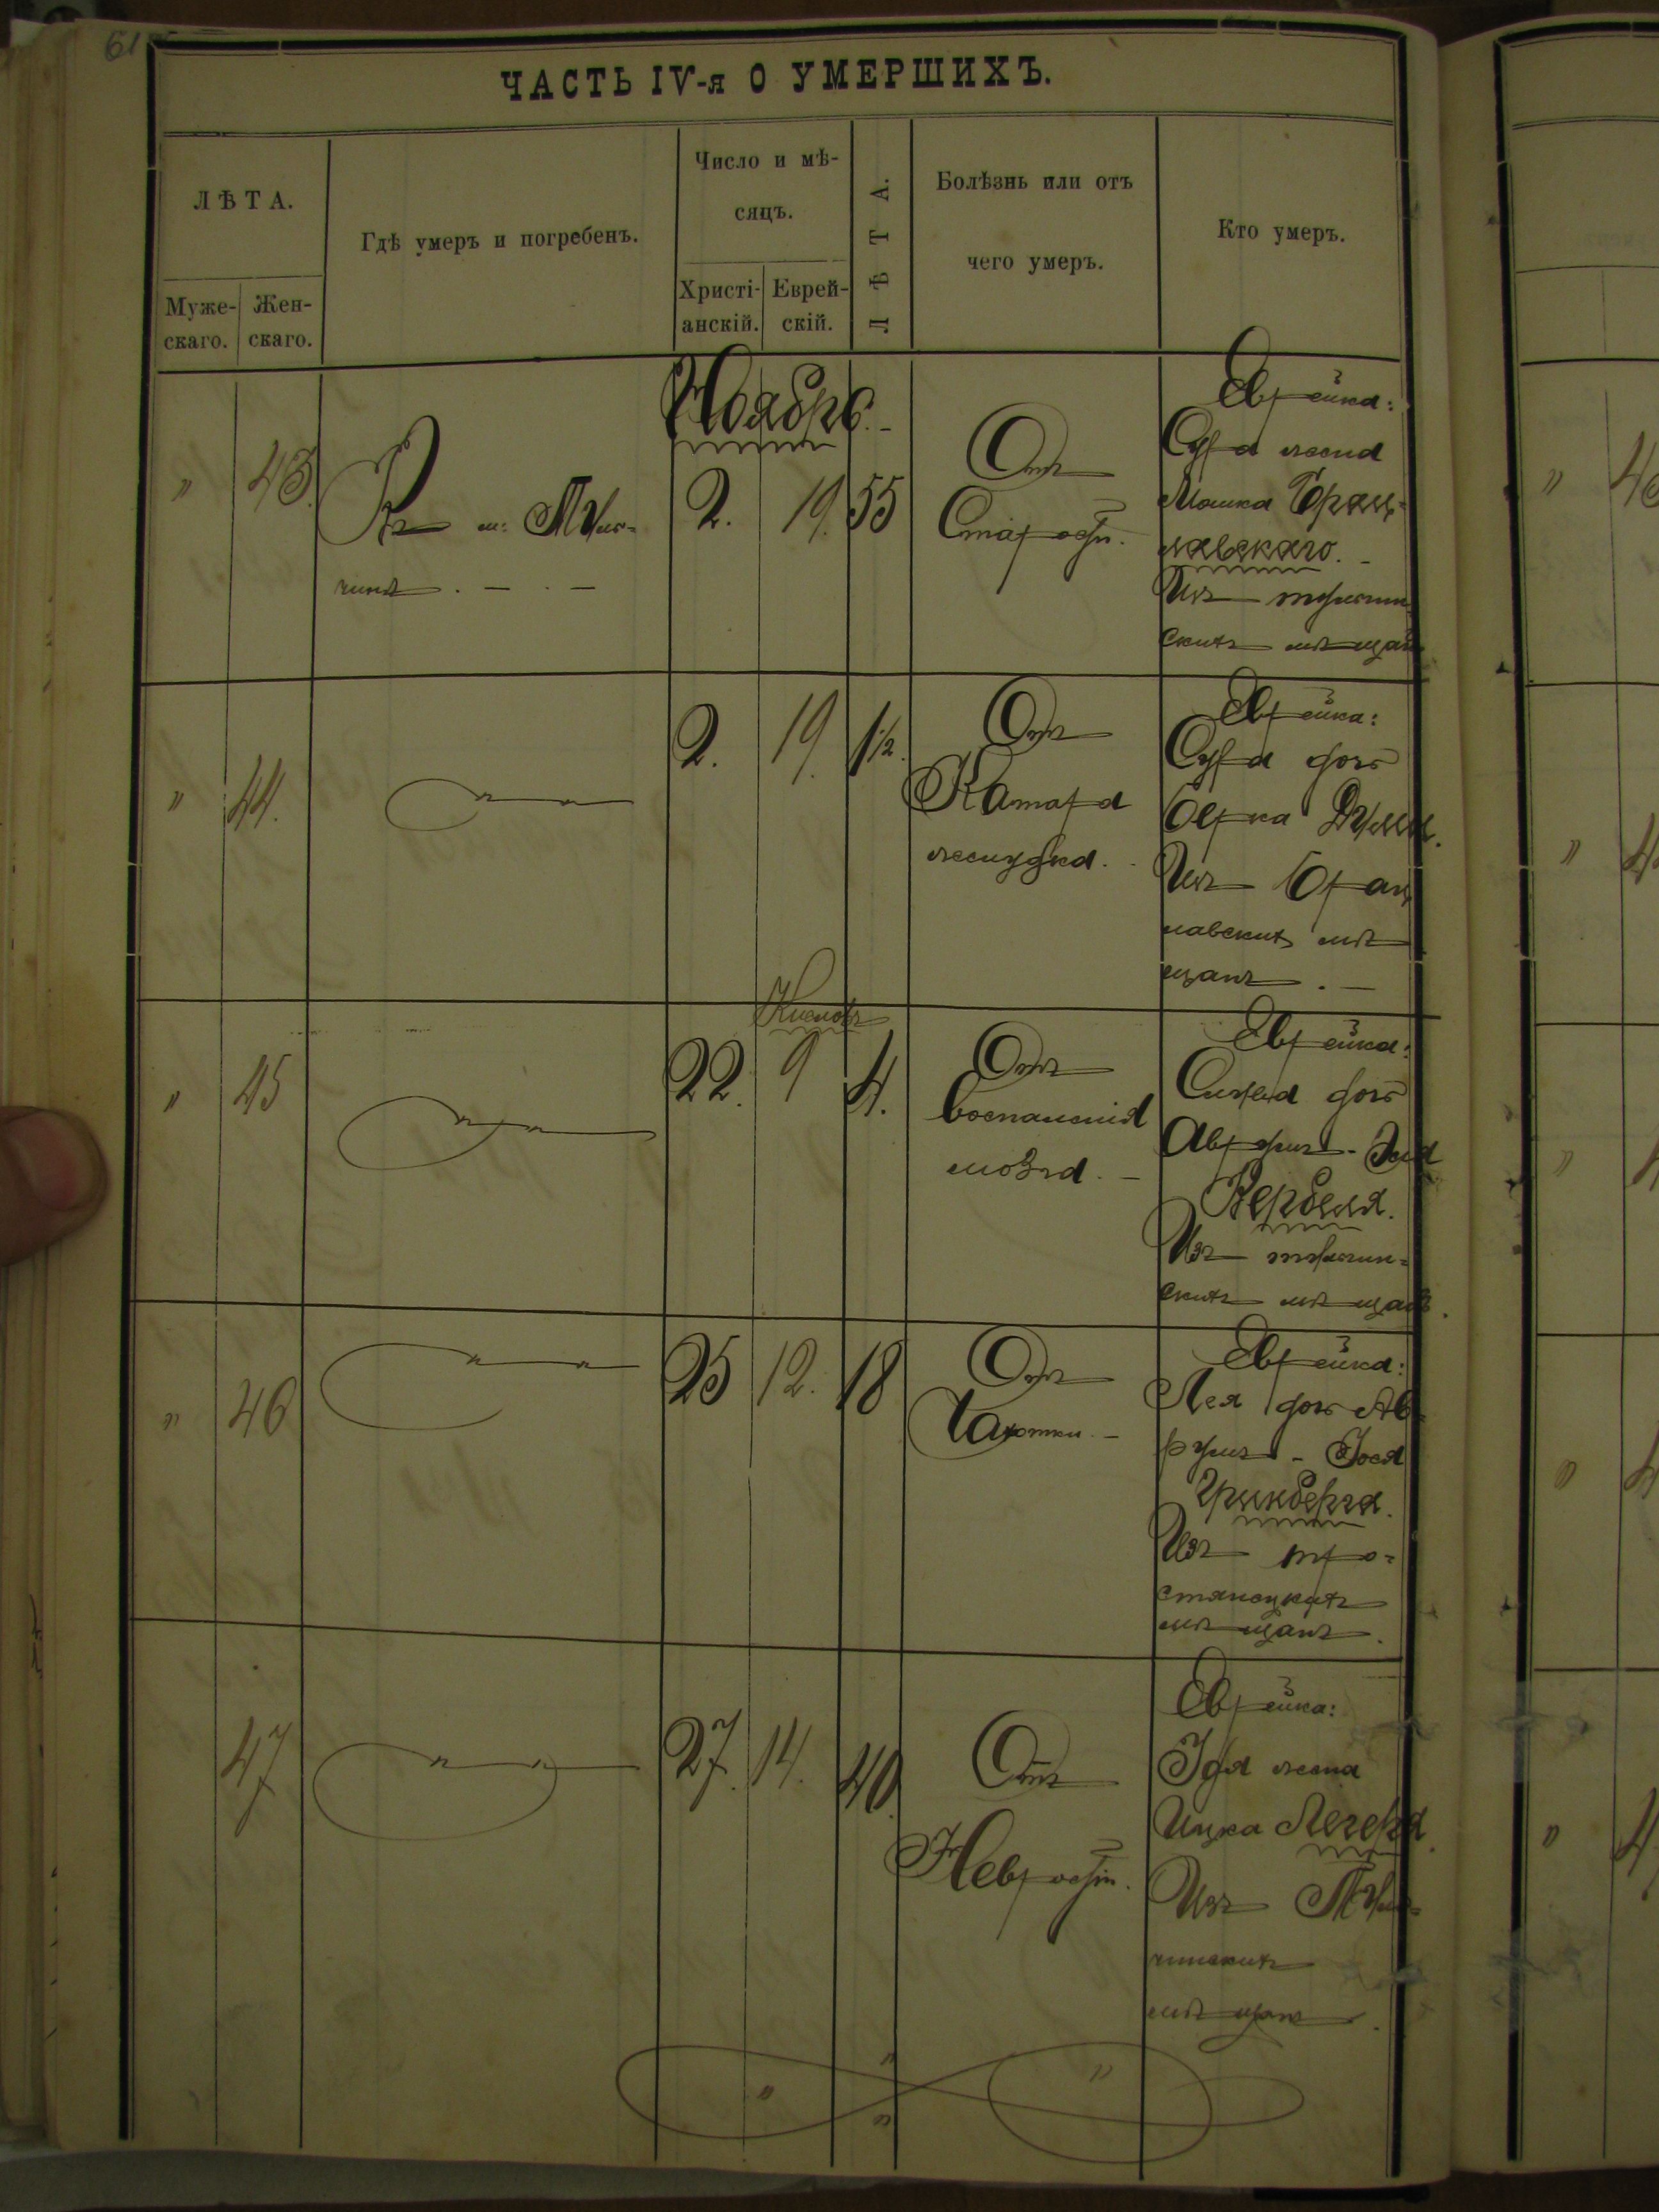 61
ЧАСТЬ IV-я О УМЕРШИХЪ.
ЛѢТА.
Муже-
скаго.
Жен-
скаго.
Гдѣ умеръ и погребенъ.
Число и мѣ-
сяцъ.
Христі-
анскій.
Еврей-
скій.
ЛѢТА.
Болѣзнь или отъ
чего умеръ.
Кто умеръ.
Ноябрь.
" 43.
Въ м: Туль-
чинѣ . — . —
2. 19. 55
Отъ
Старости.
Еврейка:
Сура жена
Мошка Брац-
лавскаго. —
Изъ тульчин-
скихъ мѣщанъ
" 44.
" "
2. 19. 1½.
Отъ
Катара
желудка.
Еврейка:
Сура дочь
Берка
Изъ Брац
лавскихъ мѣ
щанъ . —
" 45
" "
22. Кислевъ 9 4.
Отъ
Воспаленія
мозга. —
Еврейка:
дочь
Аврумъ-
Вербеля.
Изъ тульчин-
скихъ мѣщанъ.
" 46
" "
25 12. 18
Отъ
Чахотки. —
Еврейка:
Лея дочь Ав-
румъ - Іося
Гринберга.
Изъ тро-
стянецкихъ
мѣщанъ.
47
" "
27. 14. 40.
Отъ
Еврейка:
Идя жена
Ицка Легера.
Изъ Туль-
чинскихъ
мѣщанъ.
" " " "